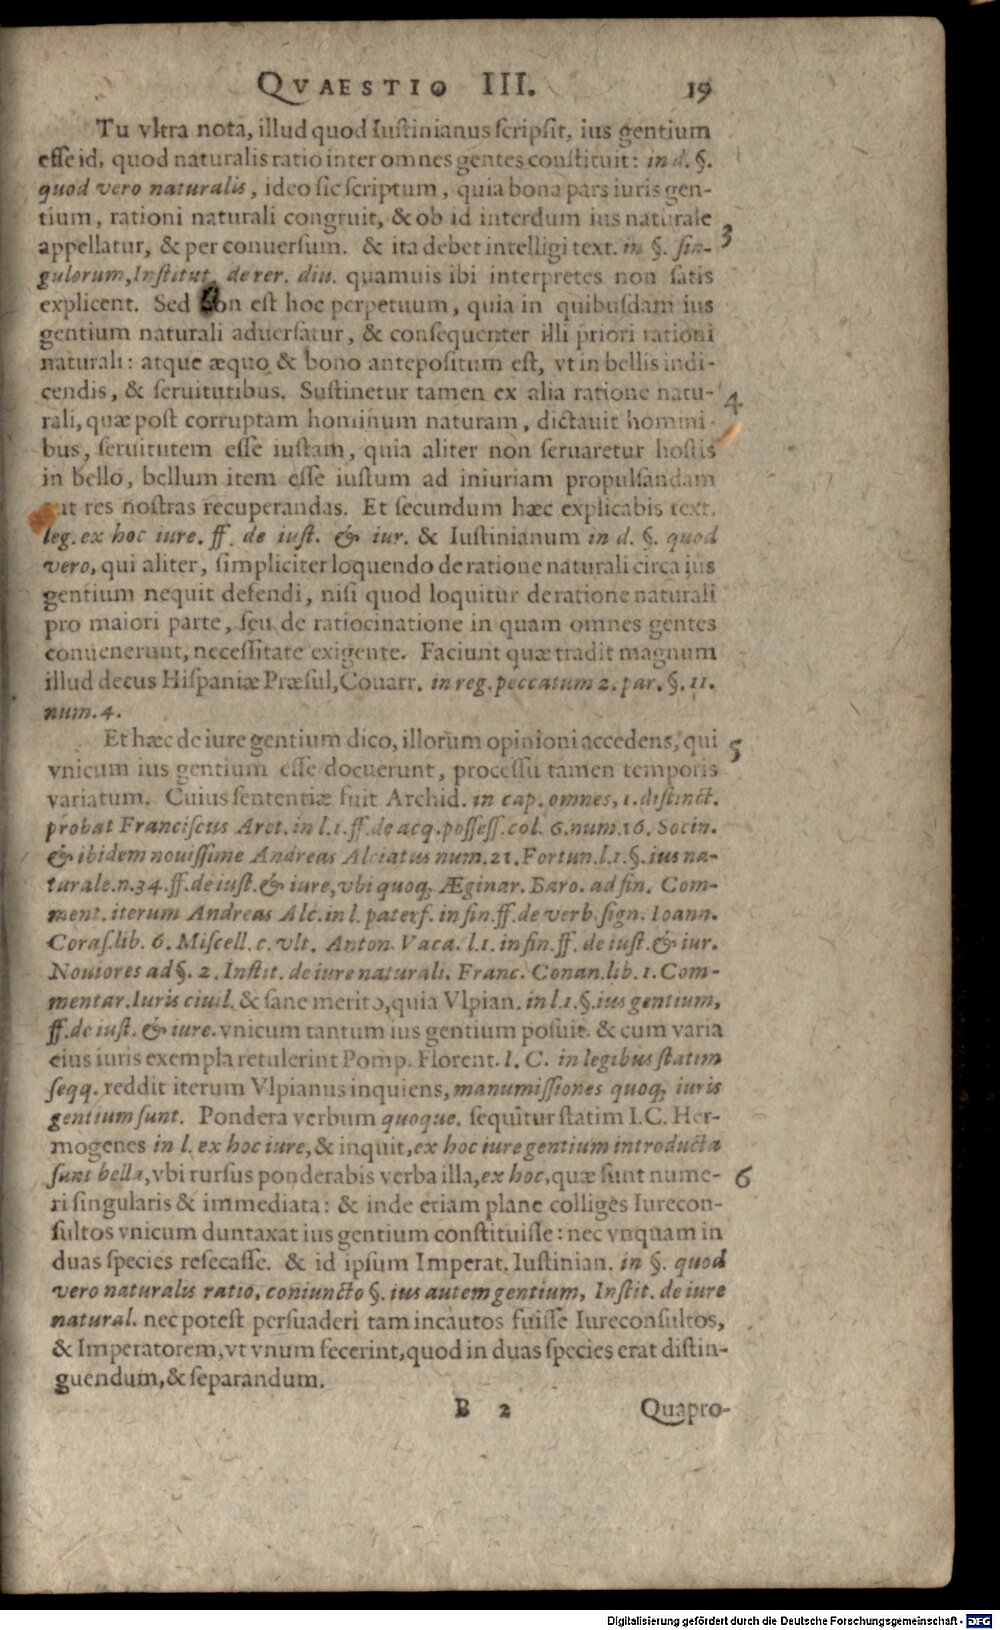 QVAESTIO III. 19
Tu vltra nota, illud quod Iustinianus scripsit, ius gentium
esse id, quod naturalis ratio inter omnes gentes constituit: in d. §.
quod vero naturalis, ideo sic scriptum, quia bona pars iuris gen-
tium, rationi naturali congruit, & ob id interdum ius naturale
appellatur, & per conuersum. & ita debet intelligi text. in §. sin- 3
gulorum, Institut. de rer. diu. quamuis ibi interpretes non satis
explicent. Sed non est hoc perpetuum, quia in quibusdam ius
gentium naturali aduersatur, & consequenter illi priori rationi
naturali: atque æquo & bono antepositum est, vt in bellis indi-
cendis, & seruitutibus. Sustinetur tamen ex alia ratione natu- 4
rali, quæ post corruptam hominum naturam, dictauit homini-
bus, seruitutem esse iustam, quia aliter non seruaretur hostis
in bello, bellum item esse iustum ad iniuriam propulsandam
aut res nostras recuperandas. Et secundum hæc explicabis text.
leg. ex hoc iure. ff. de iust. & iur. & Iustinianum in d. §. quod
vero, qui aliter, simpliciter loquendo de ratione naturali circa ius
gentium nequit defendi, nisi quod loquitur de ratione naturali
pro maiori parte, seu de ratiocinatione in quam omnes gentes
conuenerunt, necessitate exigente. Faciunt quæ tradit magnum
illud decus Hispaniæ Præsul, Couarr. in reg. peccatum 2. par. §. 11.
num. 4.
Et hæc de iure gentium dico, illorum opinioni accedens, qui 5
vnicum ius gentium esse docuerunt, processu tamen temporis
variatum. Cuius sententiæ fuit Archid. in cap. omnes, 1. distinct.
probat Franciscus Aret. in l. 1. ff. de acq. possess. col. 6. num. 16. Socin.
& ibidem nouissime Andreas Alciatus num. 21. Fortun. l. 1. §. ius na-
turale. n. 34. ff. de iust. & iure, vbi quoq; Æginar. Baro. ad fin. Com-
ment. iterum Andreas Alc. in l. pater f. in fin. ff. de verb. sign. Ioann.
Coras. lib. 6. Miscell. c. vlt. Anton. Vaca. l. 1. in fin. ff. de iust. & iur.
Nouiores ad §. 2. Instit. de iure naturali. Franc. Conan. lib. 1. Com-
mentar. Iuris ciuil. & sane merito, quia Vlpian. in l. 1. §. ius gentium,
ff. de iust. & iure. vnicum tantum ius gentium posuit. & cum varia
eius iuris exempla retulerint Pomp. Florent. I. C. in legibus statim
seqq. reddit iterum Vlpianus inquiens, manumissiones quoq; iuris
gentium sunt. Pondera verbum quoque. sequitur statim I. C. Her-
mogenes in l. ex hoc iure, & inquit, ex hoc iure gentium introducta
sunt bella, vbi rursus ponderabis verba illa, ex hoc, quæ sunt nume- 6
ri singularis & immediata: & inde etiam plane colliges Iurecon-
sultos vnicum duntaxat ius gentium constituisse: nec vnquam in
duas species resecasse. & id ipsum Imperat. Iustinian. in §. quod
vero naturalis ratio, coniuncto §. ius autem gentium, Instit. de iure
natural. nec potest persuaderi tam incautos fuisse Iureconsultos,
& Imperatorem, vt vnum fecerint, quod in duas species erat distin-
guendum, & separandum.
B 2 Quapro-
Digitalisierung gefördert durch die Deutsche Forschungsgemeinschaft - DFG